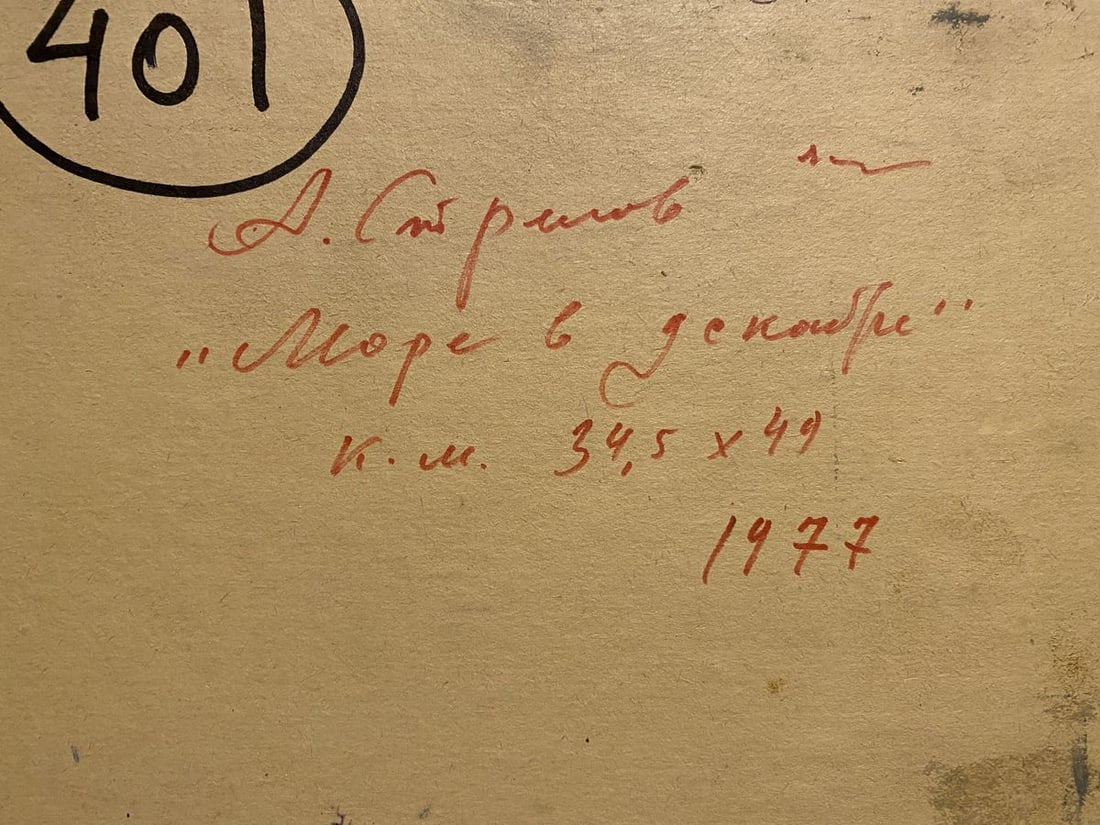 401
А. Стрилов
"Море в декабре"
к.м. 34,5 x 49
1977